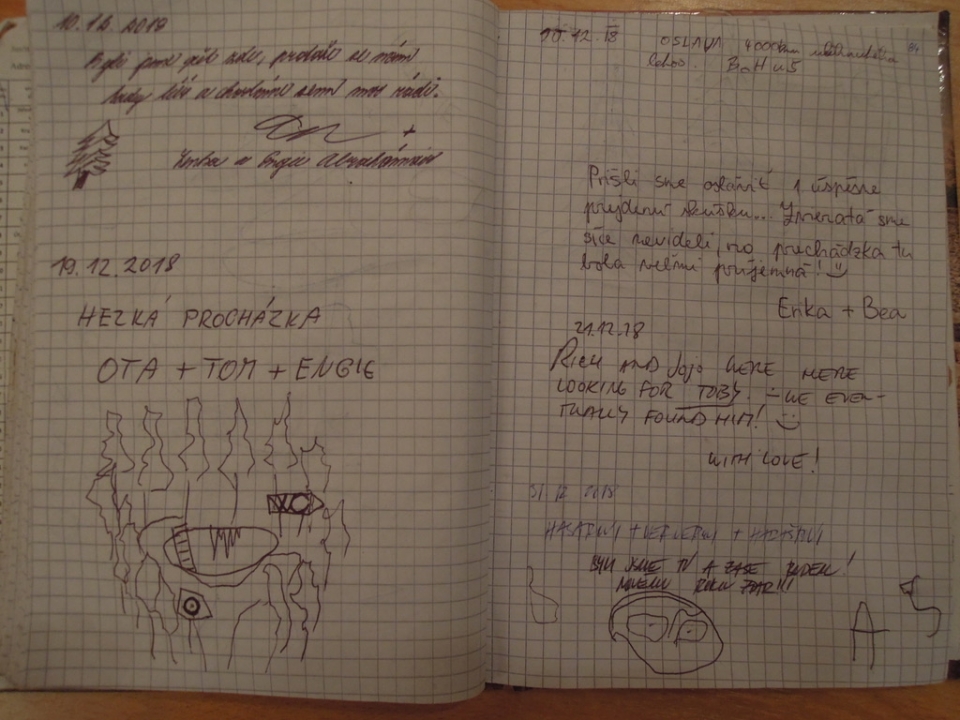 10.12.2019
Byli jsme zde, protože se nám
tady líbí a chodíme sem moc rádi.
+
a
19.12.2018
HEZKÁ PROCHÁZKA
OTA + TOM + ENGIE
10.12.18 OSLAVA 4000km
BaHuS
Prišli sme osláviť 1 úspešne
prejdenú skúšku... Zvieratá sme
síce nevideli, no prechádzka tu
bola veľmi príjemná! :)
Erika + Bea
21.12.18
RICH AND JoJo WERE HERE
LOOKING FOR TOBY. – WE EVEN-
TUALLY FOUND HIM! :)
WITH LOVE!
31.12 2018
BYLI JSME TU A ZASE
ROKU ZDAR!!!
A